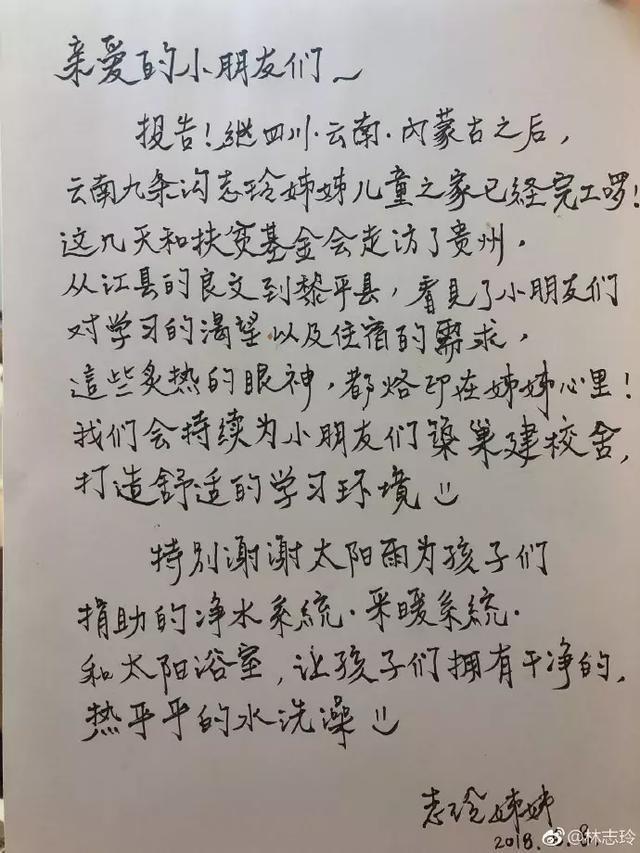 亲爱的小朋友们~
报告！继四川·云南·内蒙古之后，
云南九条沟志玲姊姊儿童之家已经完工啰！
这几天和扶贫基金会走访了贵州，
从江县的良文到黎平县，看見了小朋友们
对学习的渴望以及住宿的需求，
這些炙热的眼神，都烙印在姊姊心里！
我们会持续为小朋友们築巢建校舍，
打造舒适的学习环境
特别谢谢太阳雨为孩子们
捐助的净水系統·采暖系统·
和太阳浴室，让孩子们拥有干净的，
热乎乎的水洗澡
志玲姊姊
2018.
@林志玲